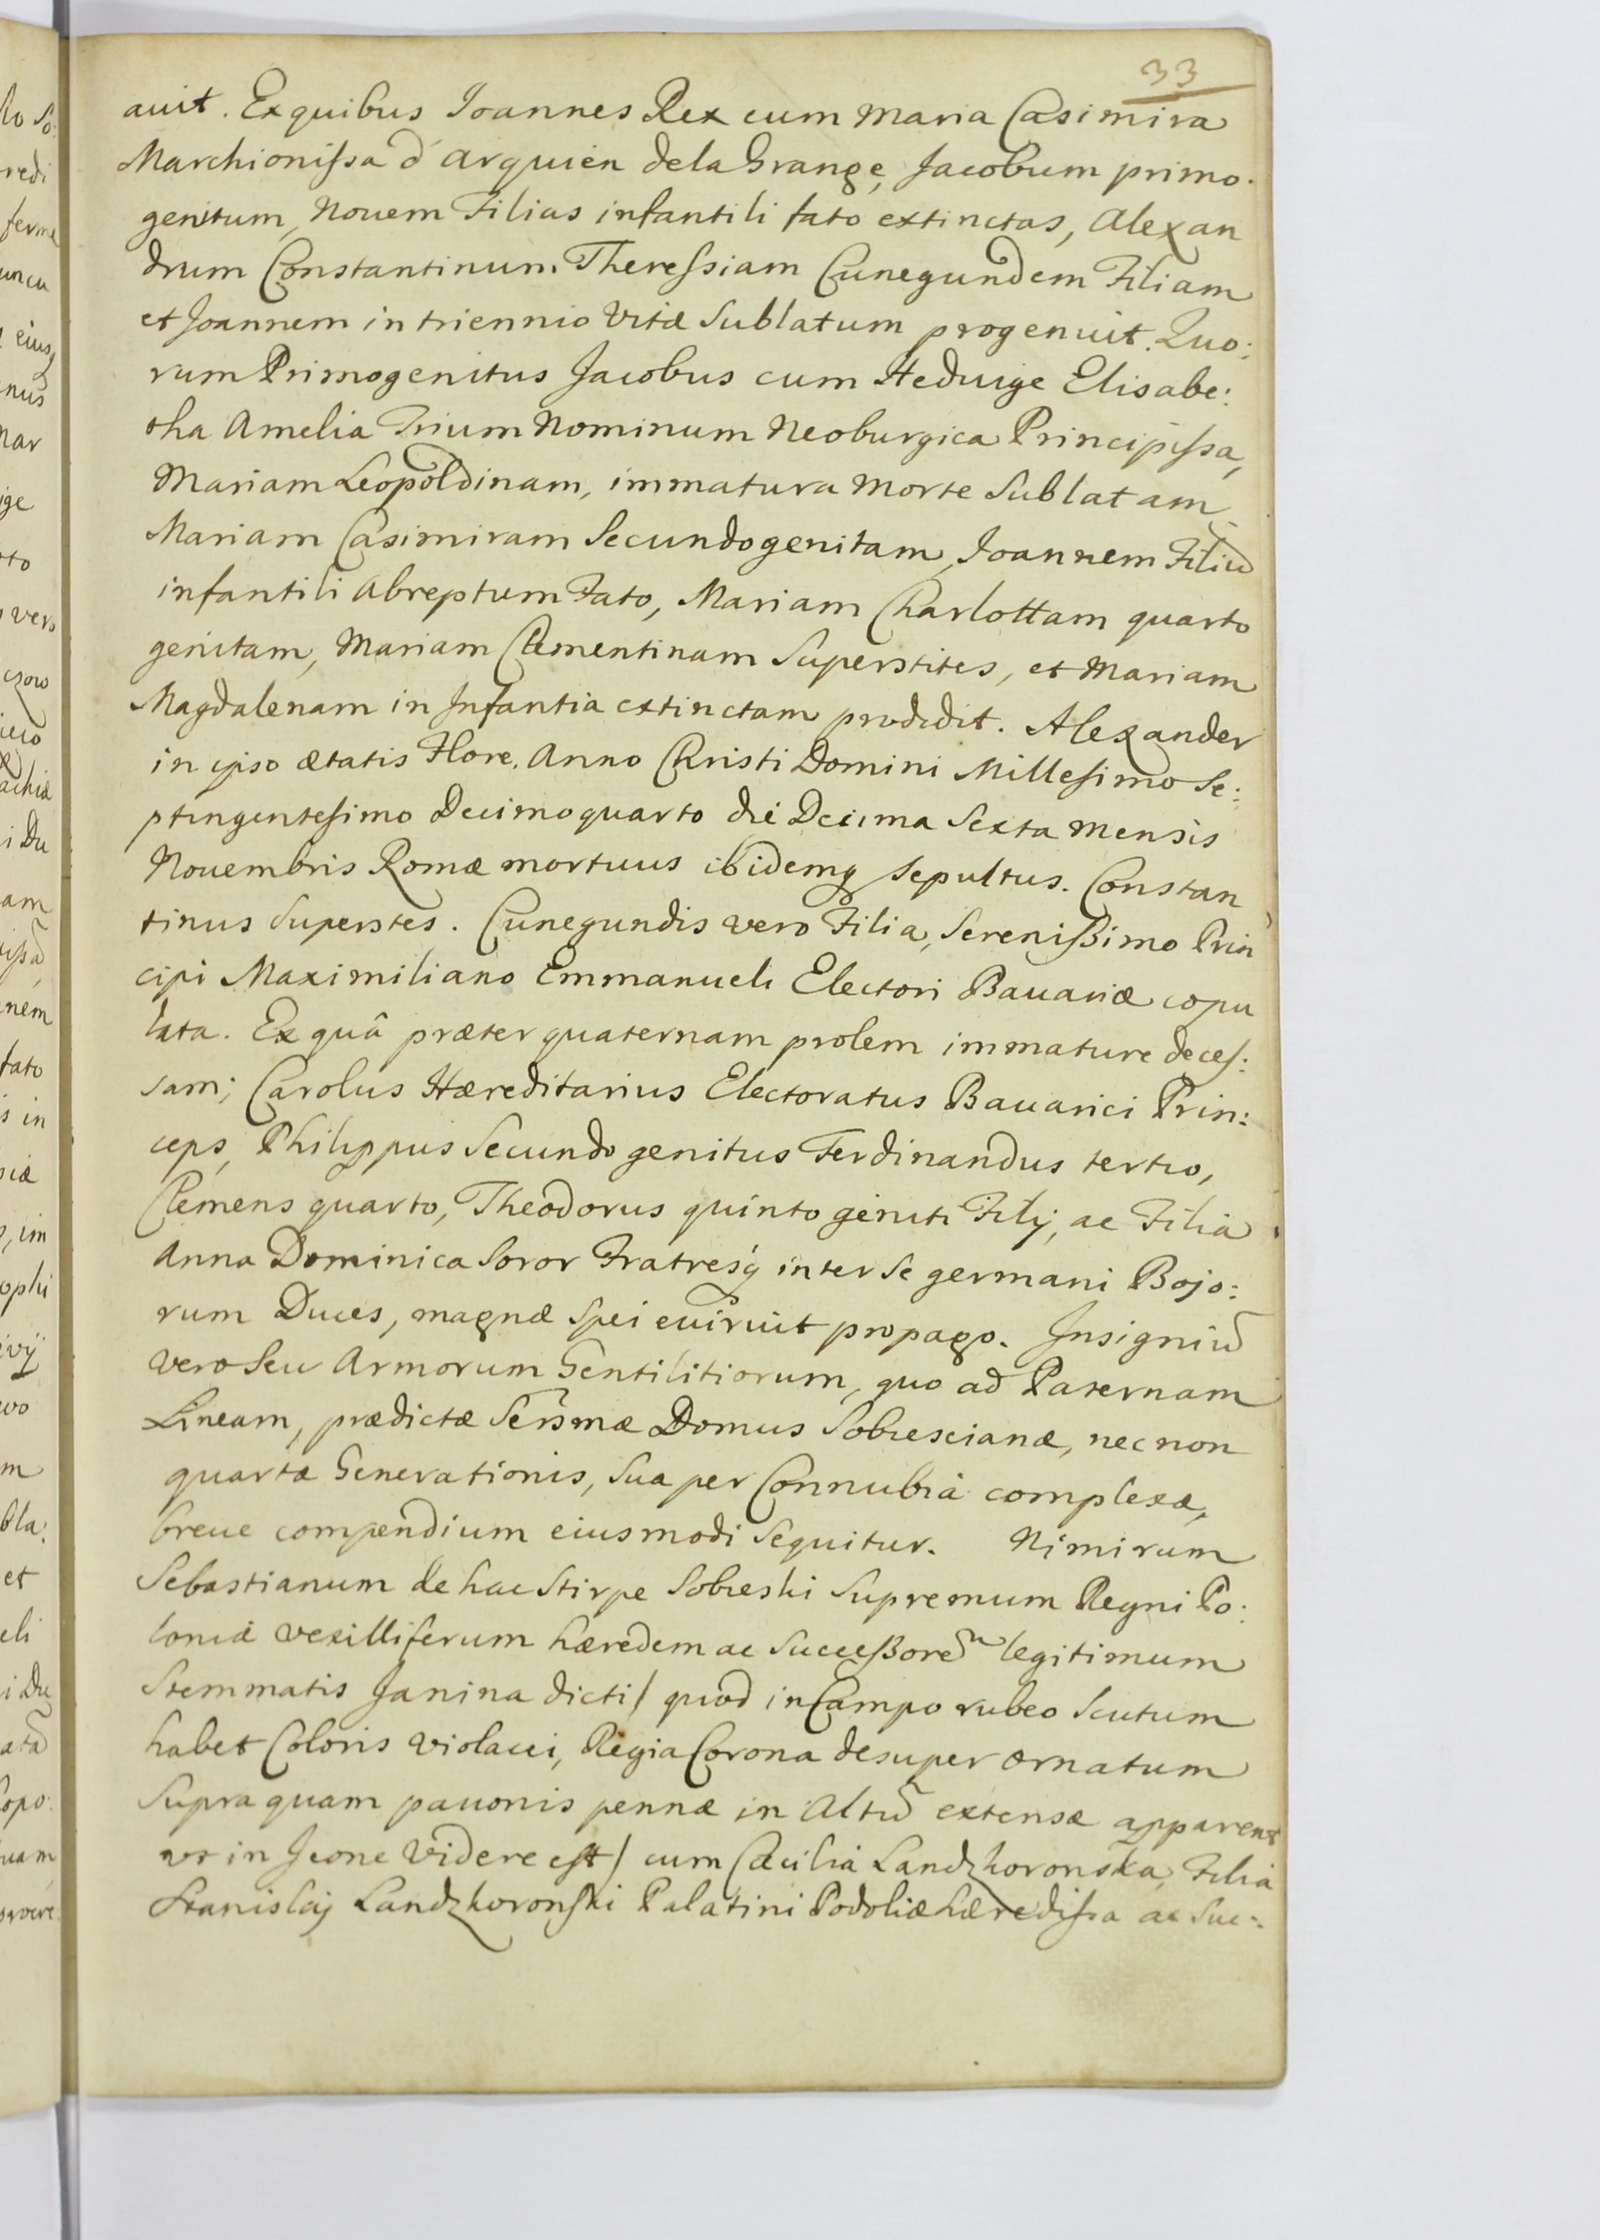 33
auit. Ex quibus Joannes Rex cum Maria Casimira
Marchionissa d'Arquien de la Grange, Jacobum primo.
genitum, Nouem Filias infantili fato extinctas, Alexan
drum Constantinum Theressiam Cunegundem Filiam
et Joannem in triennio Vitæ Sublatum progenuit. Quo:
rum Primogenitus Jacobus cum Heduige Elisabe:
tha Amelia Trium Nominum Neoburgica Principissa,
Mariam Leopoldinam, immatura Morte Sublatam
Mariam Casimiram Secundogenitam, Joannem Filiū
infantili Abreptum Fato, Mariam Charlottam quarto
genitam, Mariam Clementinam Superstites, et Mariam
Magdalenam in Infantia extinctam prodidit. Alexander
in ipso ætatis Flore, Anno Christi Domini Millesimo Se:
ptingentesimo Decimoquarto die Decima Sexta Mensis
Nouembris Romæ mortuus ibidemq sepultus. Constan
tinus Superstes. Cunegundis vero Filia, Serenissimo Prin
cipi Maximiliano Emmanueli Electori Bauariæ copu
lata. Ex quâ præter quaternam prolem immature deces:
sam; Carolus Hæreditarius Electoratus Bauarici Prin:
ceps, Philippus Secundo genitus Ferdinandus tertio,
Clemens quarto, Theodorus quinto geniti Filij, ac Filia
Anna Dominica Soror Fratresq inter Se germani Bojo:
rum Duces, magnæ Spei euiruit propago. Insigniū
vero Seu Armorum Gentilitiorum, quo ad Paternam
Lineam, prædictæ Serm̃æ Domus Sobiescianæ, nec non
quartæ Generationis, Sua per Connubia complexæ,
breue compendium eiusmodi Sequitur. Nimirum
Sebastianum de hac Stirpe Sobieski Supremum Regni Po:
loniæ vexilliferum hæredem ac Successorem legitimum
Stemmatis Janina dicti/ quod in Campo rubeo Scutum
habet Coloris Violacei, Regia Corona desuper ornatum
Supra quam pauonis pennæ in Altū extensæ apparent
vt in Icone Videre est/ cum Cæcilia Landzkoronska, Filia
Stanislaj Landzkoronski Palatini Podoliæ hæredissa ac Suc: